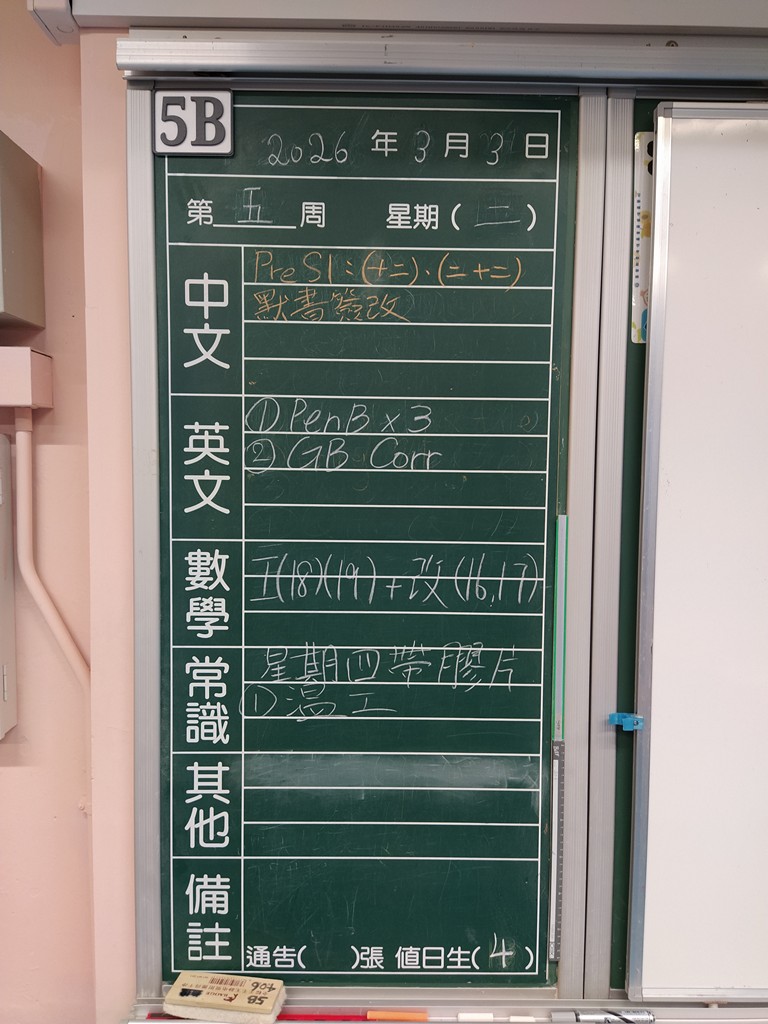 5B
2026 年 3 月 3 日
第 五 周 星期( 二 )
中文
PreS1:(十二)、(二十二)
默書簽改
英文
① PenB x 3
② GB Corr
數學
工(18)(19) + 改(16,17)
常識
星期四帶膠片
① 溫工
其他
備註
通告( )張 值日生( 4 )
5B
406